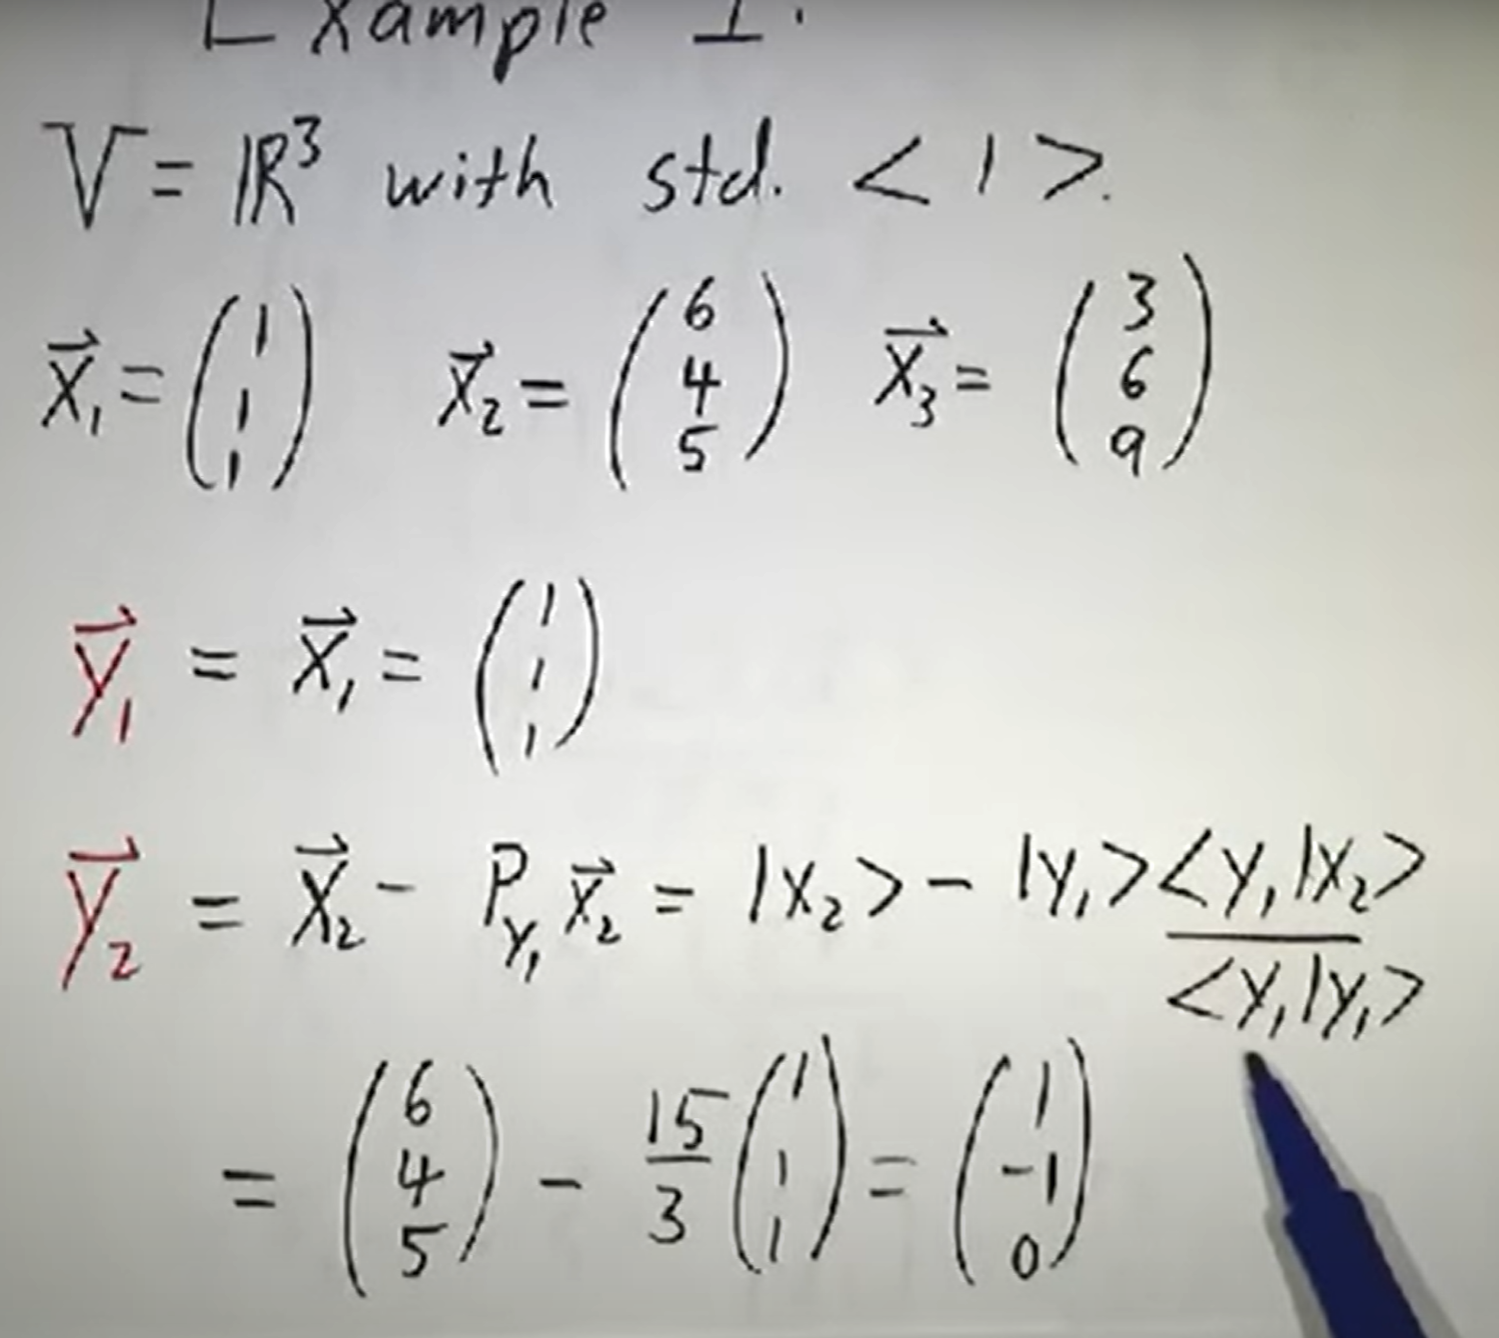 Example 1.
V = ℝ³ with std. < | >.
x⃗₁ = (1 1 1) x⃗₂ = (6 4 5) x⃗₃ = (3 6 9)
y⃗₁ = x⃗₁ = (1 1 1)
y⃗₂ = x⃗₂ - P_y₁ x⃗₂ = |x₂> - |y₁> <y₁|x₂> / <y₁|y₁>
= (6 4 5) - 15/3 (1 1 1) = (1 -1 0)